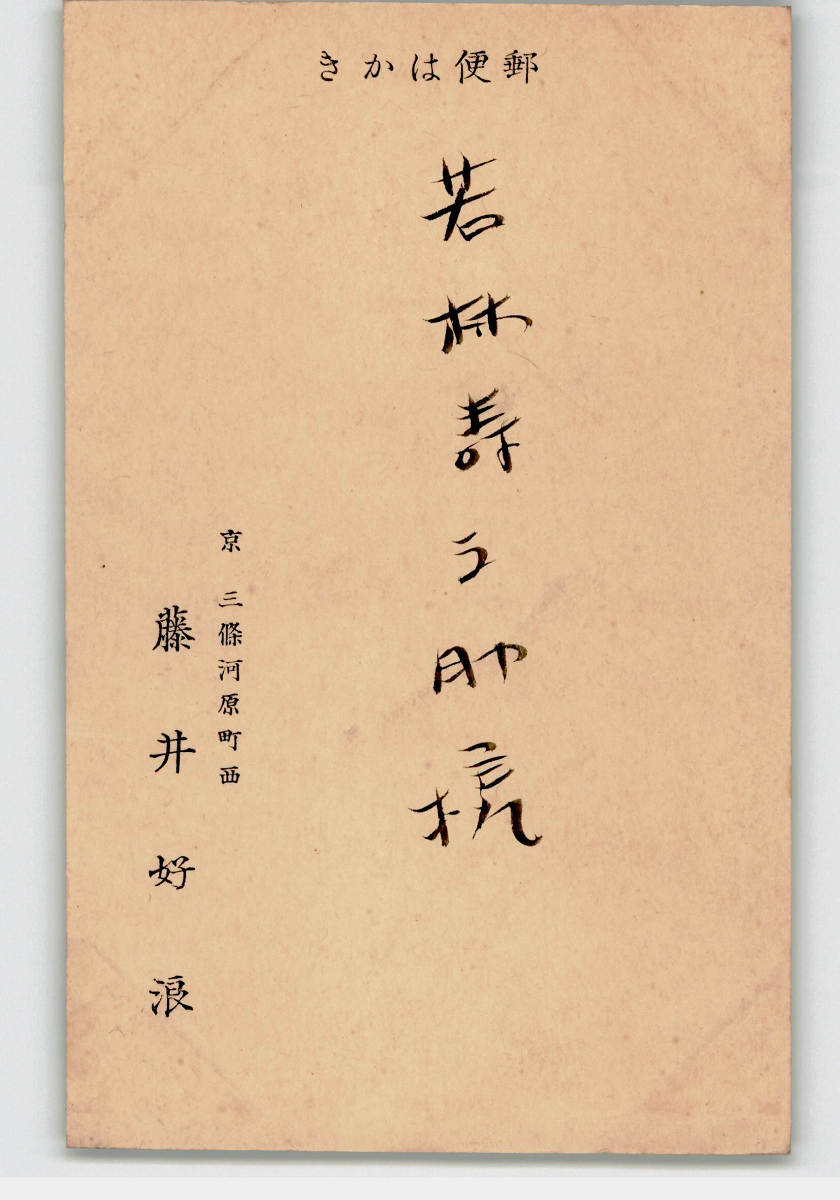 郵便はかき
若林寿之助様
京 三條河原町西
藤井好浪